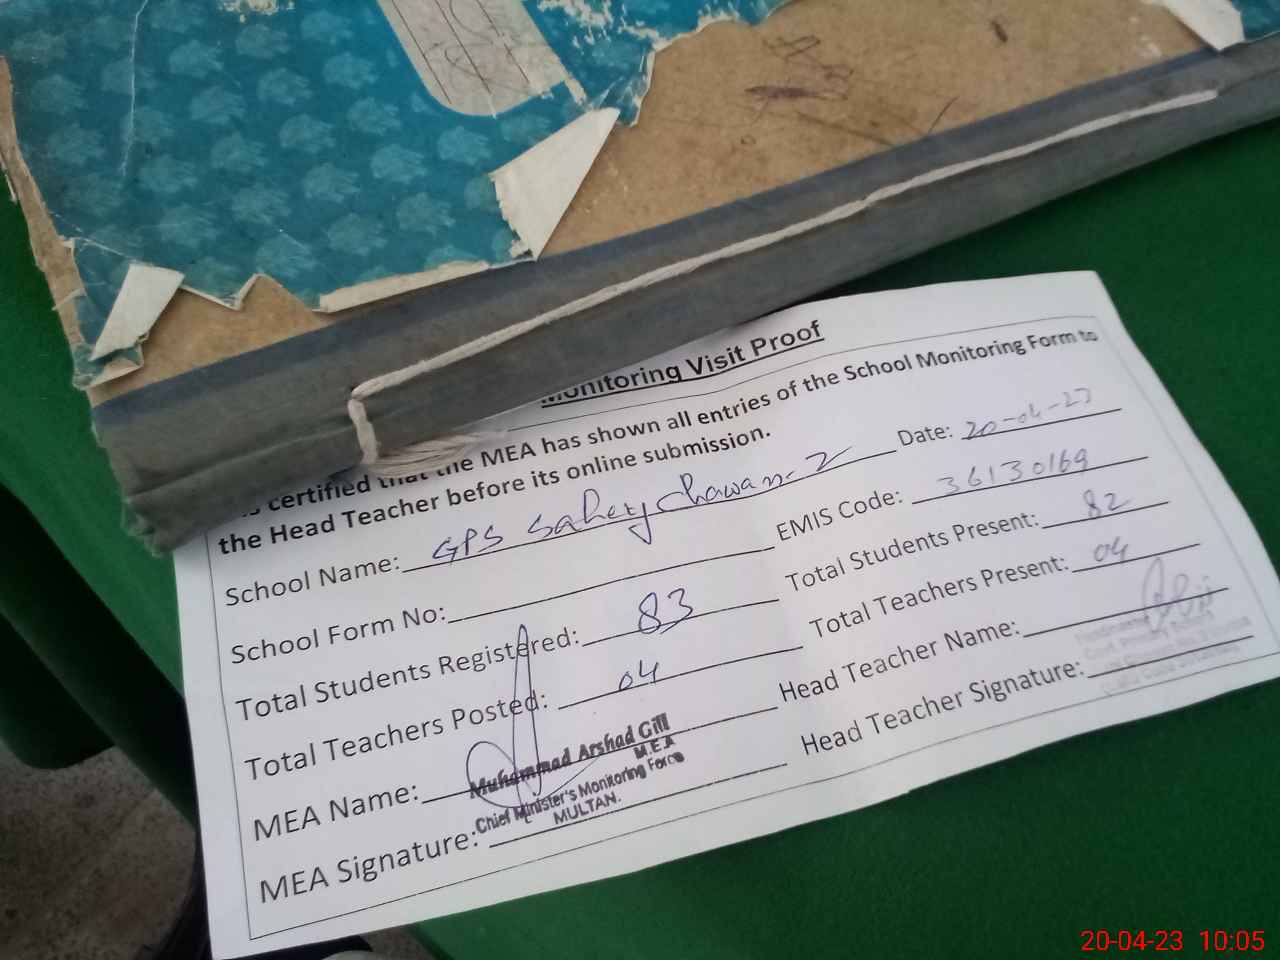 Monitoring Visit Proof
is certified that the MEA has shown all entries of the School Monitoring Form to
the Head Teacher before its online submission.
School Name: GPS Sahey Chawan-2 Date: 20-04-23
School Form No: EMIS Code: 36130169
Total Students Registered: 83 Total Students Present: 82
Total Teachers Posted: 04 Total Teachers Present: 04
MEA Name: Head Teacher Name:
Muhammad Arshad Gill
M.E.A
Chief Minister's Monitoring Force
MULTAN.
MEA Signature: Head Teacher Signature:
20-04-23 10:05